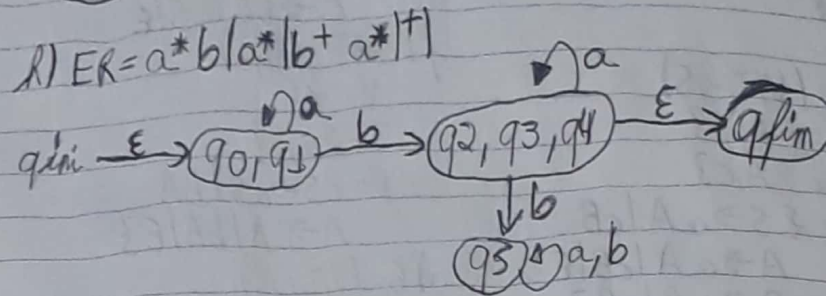 R) ER = a* b(a*(b+ a*)+)
a a
qini ε q0, q1 b q2, q3, q4 ε qfim
b
q5 a, b